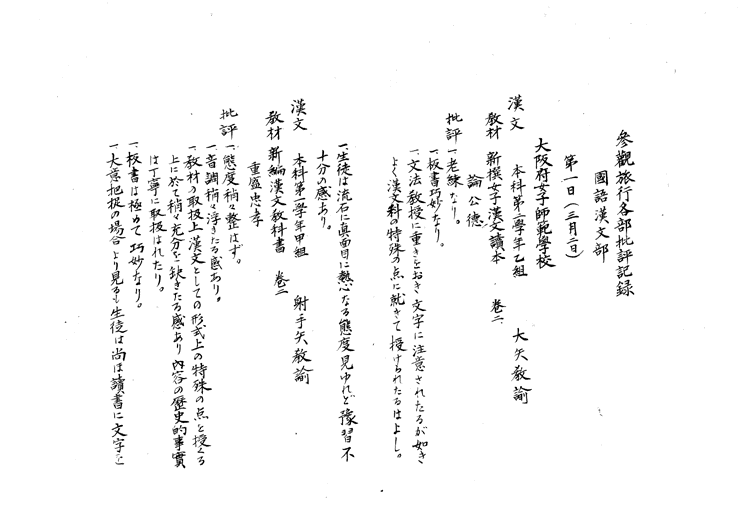 參觀旅行各部批評記録
國語漢文部
第一日(三月二日)
大阪府女子師範學校
漢文 本科第二學年乙組 大矢教諭
教材 新撰女子漢文讀本 巻二
論公徳
批評 一、老練なり。
一、板書巧妙なり。
一、文法教授に重きをおき文字に注意されたるが如き
よく漢文科の特殊の点に就きて授けられたるはよし。
一、生徒は流石に真面目に熱心なる態度見ゆれど豫習不
十分の感あり。
漢文 本科第一學年甲組 射手矢教諭
教材 新編漢文教科書 巻二
重盛忠孝
批評 一、態度稍々整はず。
一、音調稍々浮きたる感あり。
一、教材の取扱上漢文としての形式上の特殊の点と授くる
上に於て稍々充分を缺きたる感あり内容の歴史的事實
は丁寧に取扱はれたり。
一、板書は極めて巧妙なり。
一、大意把捉の場合より見るも生徒は尚ほ讀書に文字を